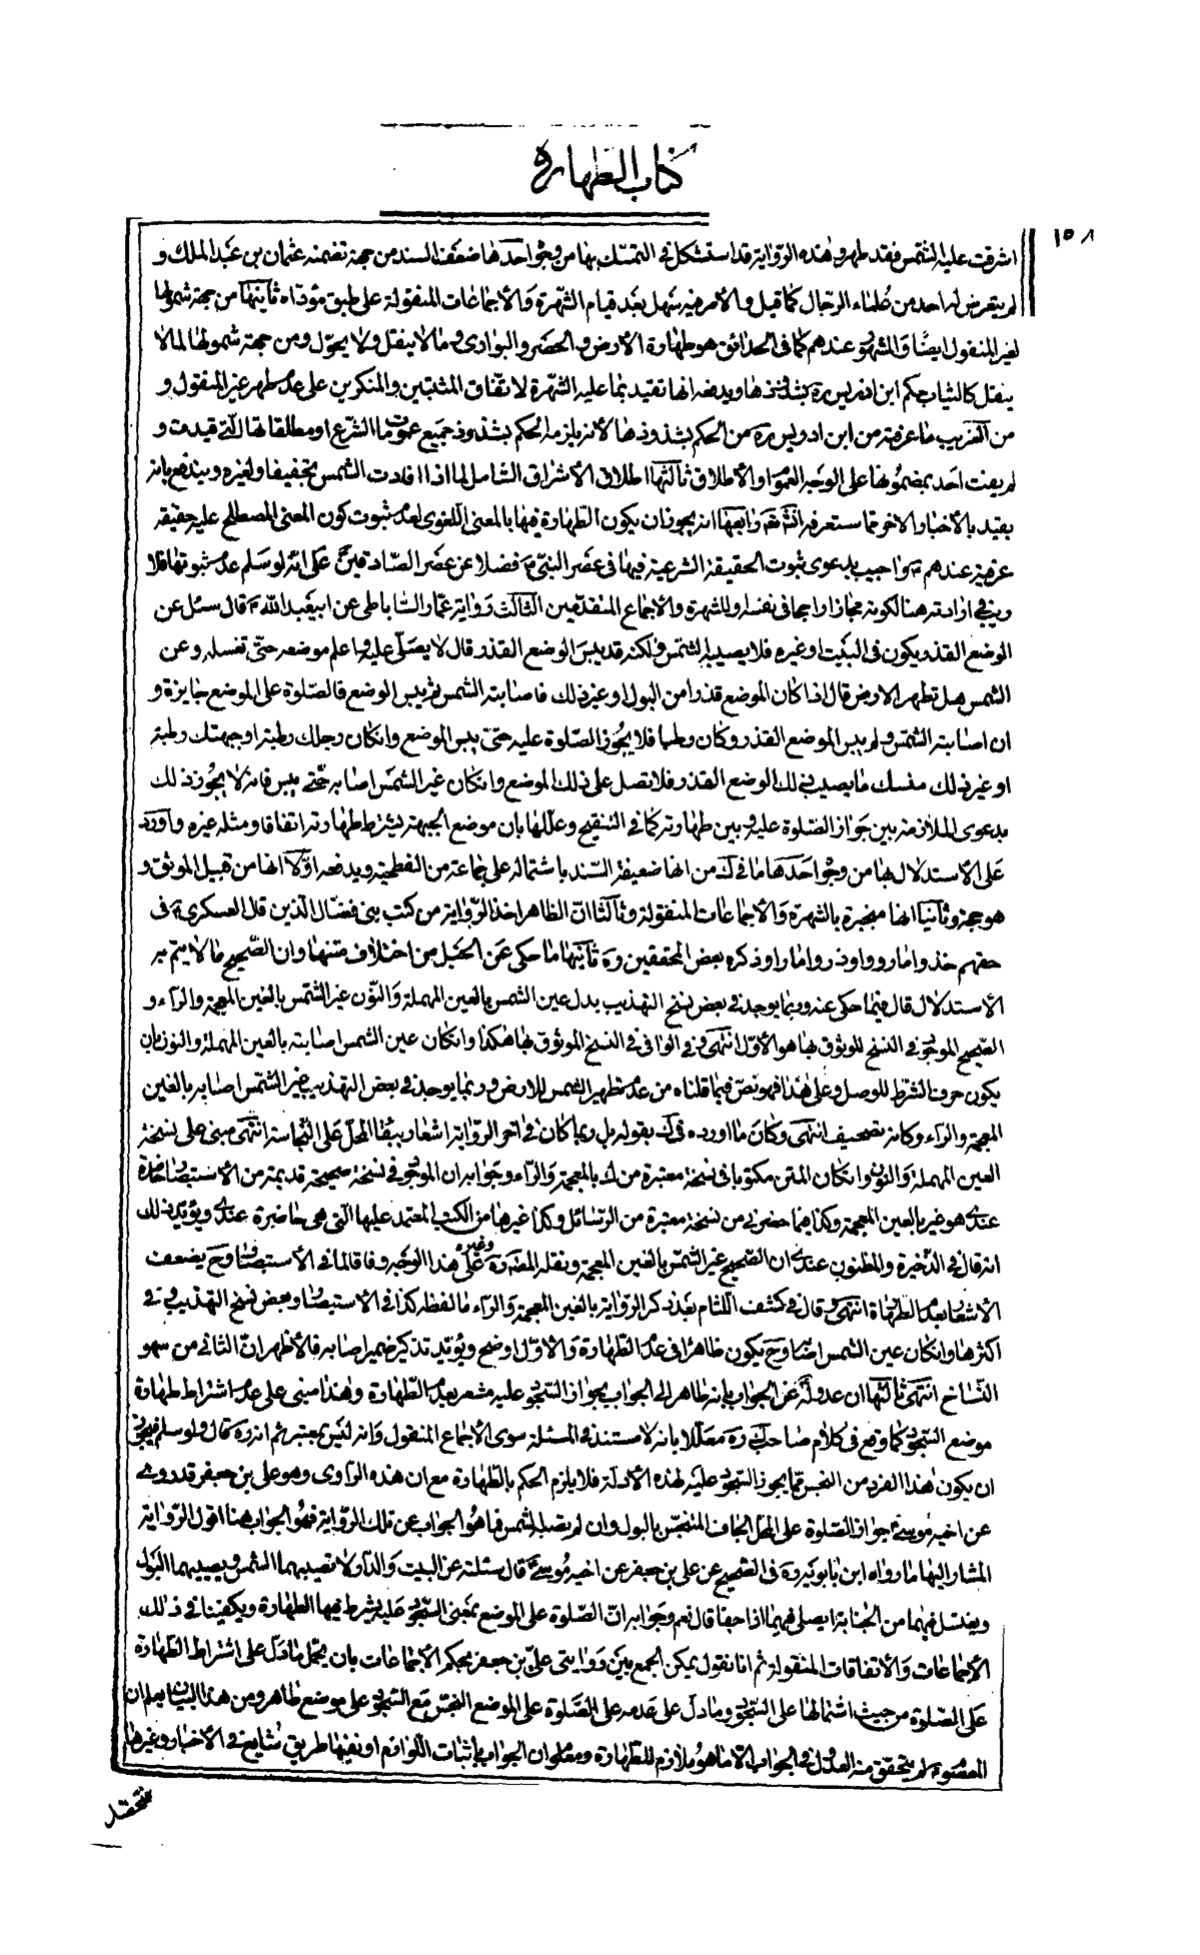 كتاب الطهارة
١٥٨
اشرقت عليه الشمس فقد طهر وهذه الرواية قد استشكل في التمسك بها من وجوه احدها ضعف السند من جهة تضمنه عثمان بن عبد الملك و
لم يتعرض له احد من علماء الرجال كما قيل والأمر فيه سهل بعد قيام الشهرة والأجماعات المنقولة على طبق مؤداه ثانيها من جهة شمولها
لغير المنقول ايضا والمشهور عندهم كما في الحدائق هو طهارة الأرض والحصر والبوارى وما لا ينقل ولا يحوّل ومن جهة شمولها لما لا
ينقل كالثياب حكم ابن ادريس ره بشذوذها ويدفعه انها تقيد بما عليه الشهرة لاتفاق المثبتين والمنكرين على عدم طهر غير المنقول و
من الغريب ما عرفته من ابن ادريس ره من الحكم بشذوذها لأنه يلزمه الحكم بشذوذ جميع عمومات الشرع او مطلقاتها التي قيدت و
لم يفت احد بمضمونها على الوجه العموم او الأطلاق ثالثها اطلاق الأشراق الشامل لما اذا افادت الشمس تجفيفا ولغيره ويندفع بانه
يقيد بالأخبار الاخر مما ستعرفه انشاء الله تعالى رابعها انه يجوز ان يكون الطهارة فيها بالمعنى اللغوى لعدم ثبوت كون المعنى المصطلح عليه حقيقة
عرفية عندهم ع واجيب بدعوى ثبوت الحقيقة الشرعية فيها في عصر النبي ص فضلا عن عصر الصادقين ع على انه لو سلم عدم ثبوتها فلا
ريب في ارادته هنا لكونه مجازا راجحا في نفسه وللشهرة والأجماع المتقدمين الثالث رواية عمار الساباطى عن ابيعبد الله ع قال سئل عن
الموضع القذر يكون في البيت او غيره فلا يصيبه الشمس ولكنه قد يبس الموضع القذر قال لا يصلى عليه واعلم موضعه حتى تغسله وعن
الشمس هل تطهر الارض قال اذا كان الموضع قذرا من البول او غير ذلك فاصابته الشمس ثم يبس الموضع فالصلوة على الموضع جايزة و
ان اصابته الشمس ولم ييبس الموضع القذر وكان رطبا فلا يجوز الصلوة عليه حتى ييبس الموضع وانكان رجلك رطبة او جبهتك رطبة
او غير ذلك منك ما يصيب ذلك الموضع القذر فلا تصل على ذلك الموضع وانكان غير الشمس اصابه حتى يبس فانه لا يجوز ذلك
بدعوى الملازمة بين جواز الصلوة عليه وبين طهارته كما في التنقيح وعللها بان موضع الجبهة يشترط طهارته اتفاقا ومثله غيره واورد
على الأستدلال بها من وجوه احدها ما في ك من انها ضعيفة السند باشتماله على جماعة من الفطحية ويدفعه اوّلا انها من قبيل الموثق و
هو حجة وثانيا انها منجبرة بالشهرة والأجماعات المنقولة وثالثا ان الظاهر اخذ الرواية من كتب بنى فضال الذين قال العسكرى ع في
حقهم خذوا ما رووا وذروا ما راوا ذكره بعض المحققين ره ثانيها ما حكى عن الحبل من اختلاف متنها وان الصحيح مما لا يتم به
الأستدلال قال فيما حكى عنه وربما يوجد في بعض نسخ التهذيب بدل عين الشمس بالعين المهملة والنون غير الشمس بالغين المعجمة والراء و
الصحيح الموجود في النسخ الموثوق بها هو الأول انتهى وفي الوافى في النسخ الموثوق بها هكذا وانكان عين الشمس اصابته بالعين المهملة والنون بان
يكون حرف الشرط للوصل وعلى هذا فهو نص فيما قلناه من عدم تطهير الشمس للارض وربما يوجد في بعض التهذيب غير الشمس اصابه بالغين
المعجمة والراء وكانه تصحيف انتهى وكان ما اورده في ك بقوله بل ربما كان في اخر الرواية اشعار ببقاء المحل على النجاسة انتهى مبنى على نسخة
العين المهملة والنون وانكان المتن مكتوبا في نسخة معتبرة من ك بالمعجمة والراء وجوابه ان الموجود في نسخة صحيحة قديمة من الأستبصار حاضرة
عندى هو غير بالغين المعجمة وكذا فيما حضرنى من نسخة معتبرة من الوسائل وكذا غيرها من الكتب المعتمد عليها التى هى حاضرة عندى ويؤيد ذلك
انه قال في الذخيرة والمظنون عندى ان الصحيح غير الشمس بالغين المعجمة ونقله المص ره وغيره على هذا الوجه وفاقا لما في الأستبصار وح يضعف
الأشعار بعدم الطهارة انتهى وقال في كشف اللثام بعد ذكر الرواية بالغين المعجمة والراء ما لفظه كذا في الاستبصار وبعض نسخ التهذيب وفي
اكثرها وانكان عين الشمس اصابه وح يكون ظاهرا في عدم الطهارة والاول اوضح ويؤيد تذكير ضمير اصابه فالأظهر ان الثانى من سهو
النساخ انتهى ثالثها ان عدوله عن الجواب بانه طاهر الى الجواب بجواز السجود عليه مشعر بعدم الطهارة وهذا مبنى على عدم اشتراط طهارة
موضع السجود كما وقع في كلام صاحب ك ره معللا بانه لا مستند في المسئلة سوى الأجماع المنقول وانه ليس بمعتبر ثم انه ره قال ولو سلم فيجوز
ان يكون هذا الفرد من النجس مما يجوز السجود عليه لهذه الأدلة فلا يلزم الحكم بالطهارة مع ان هذه الراوى وهو على بن جعفر قد روى
عن اخيه موسى ع جواز الصلوة على المحل الجاف المتنجس بالبول وان لم تصبه الشمس فما هو الجواب عن تلك الرواية فهو الجواب هنا اقول الرواية
المشار اليها ما رواه ابن بابويه ره في الصحيح عن على بن جعفر عن اخيه موسى ع قال سئلته عن البيت والدار لا تصيبهما الشمس ويصيبهما البول
ويغتسل فيهما من الجنابة ايصلى فيهما اذا جفا قال نعم وجوابه ان الصلوة على الموضع بمعنى السجود عليه يشترط فيها الطهارة ويكفينا في ذلك
الأجماعات والأتفاقات المنقولة ثم انا نقول يمكن الجمع بين روايتى على بن جعفر بحكم الأجماعات بان يحمل ما دل على اشتراط الطهارة
على الصلوة من حيث اشتمالها على السجود وما دل على عدمه على الصلوة على الموضع النجس مع السجود على موضع طاهر ومن هذا البيان يعلم ان
المعصوم ع لم يتحقق منه العدول في الجواب الا ما هو ملازم للطهارة ومعلوم ان الجواب باثبات اللوازم او نفيها طريق شايع في الأخبار وغيرها